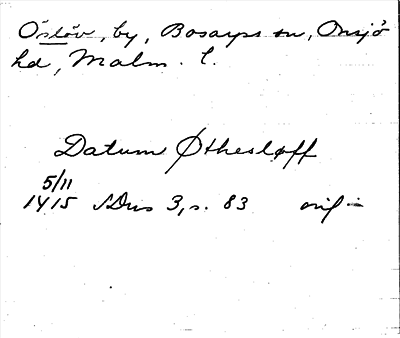 Östöv, by, Bosarps sn, Onsjö
hd, Malm. l.
Datum Øthesløff
5/11
1415 SDns 3, s. 83 orig